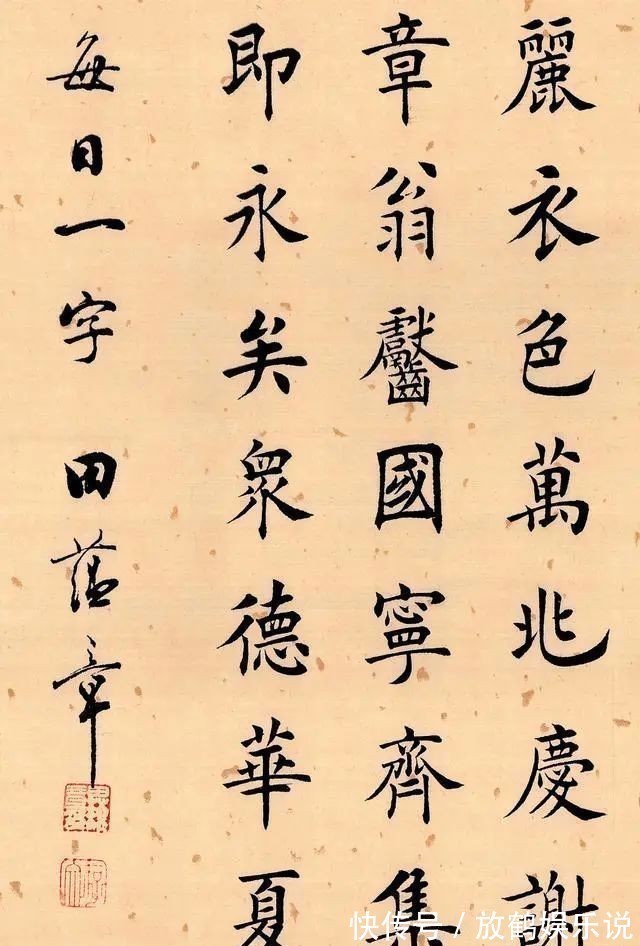 麗衣色萬北慶謝
章翁齾國寧齊集
即永矣衆德華夏
每日一字 田蘊章
快传号／放鹤娱乐说